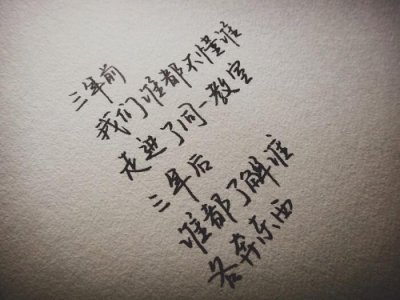 三年前
我们谁都不懂谁
走进了同一教室
三年后
谁都了解谁
各奔东西